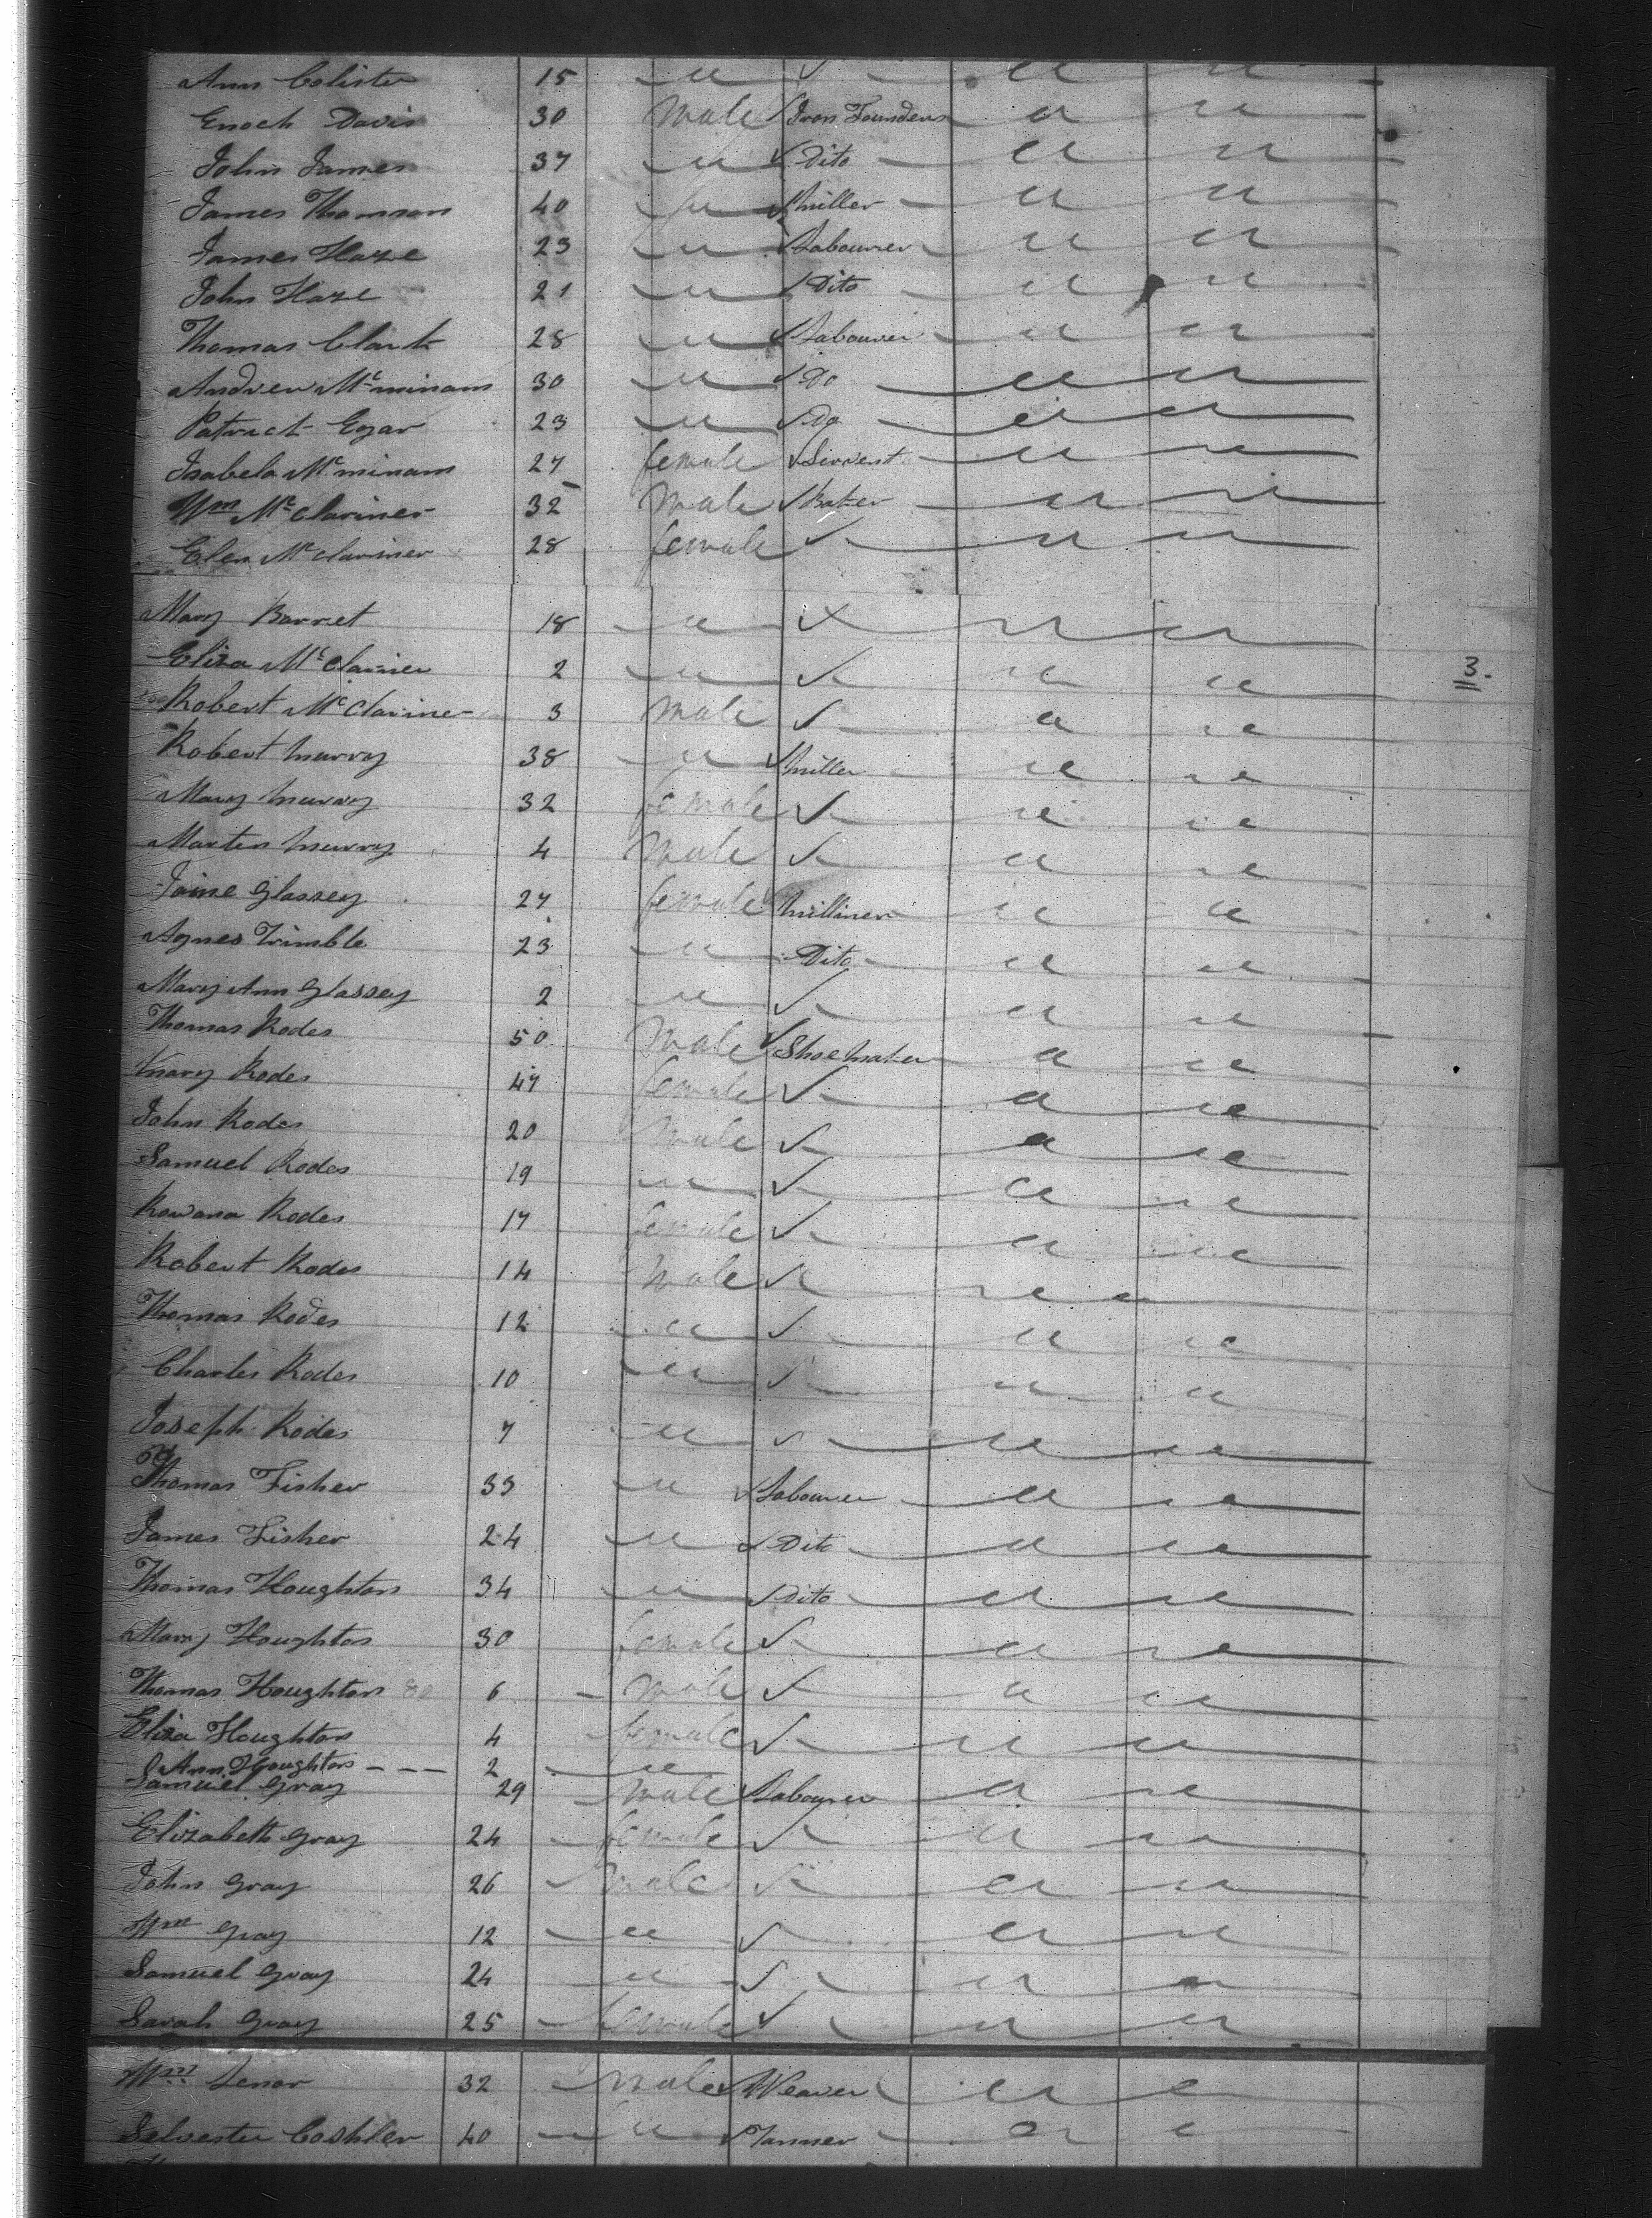 Ann Colister 15 " " "
Enoch Davis 30 Male Iron Founders " "
John James 37 " Dito " "
James Thomson 40 " Miller " "
James Haze 23 " Labourer " "
John Haze 21 " Dito " "
Thomas Clark 28 " Labourer " "
Andrew Mcminam 30 " Do " "
Patrick Egar 23 " Do " "
Isabela Mcminam 27 female Servent " "
Wm McClariner 32 Male Baker " "
Elen McClariner 28 female " "
Mary Barret 18 " " "
Eliza McClariner 2 " " "
3.
Robert McClariner 3 Male " "
Robert Murry 38 " Miller " "
Mary Murry 32 female " "
Martin Murry 4 Male " "
Jaine Glassey 27 female Milliner " "
Agnes Trimble 23 " Dito " "
Mary Ann Glassey 2 " " "
Thomas Rodes 50 Male Shoe Maker " "
Mary Rodes 47 female " "
John Rodes 20 Male " "
Samuel Rodes 19 " " "
Rowana Rodes 17 female " "
Robert Rodes 14 Male " "
Thomas Rodes 12 " " "
Charles Rodes 10 " " "
Joseph Rodes 7 " " "
Thomas Fisher 33 " Labourer " "
James Fisher 24 " Dito " "
Thomas Houghton 34 " Dito " "
Mary Houghton 30 female " "
Thomas Houghton 80 6 Male " "
Eliza Houghton 4 female " "
Ann Houghton --- 2 "
Samuel Gray 29 Male Labourer " "
Elizabeth Gray 24 female " "
John Gray 26 Male " "
Wm Gray 12 " " "
Samuel Gray 24 " " "
Sarah Gray 25 female " "
Wm Lenor 32 Male Weaver " "
Selvester Coshler 40 " Tanner " "